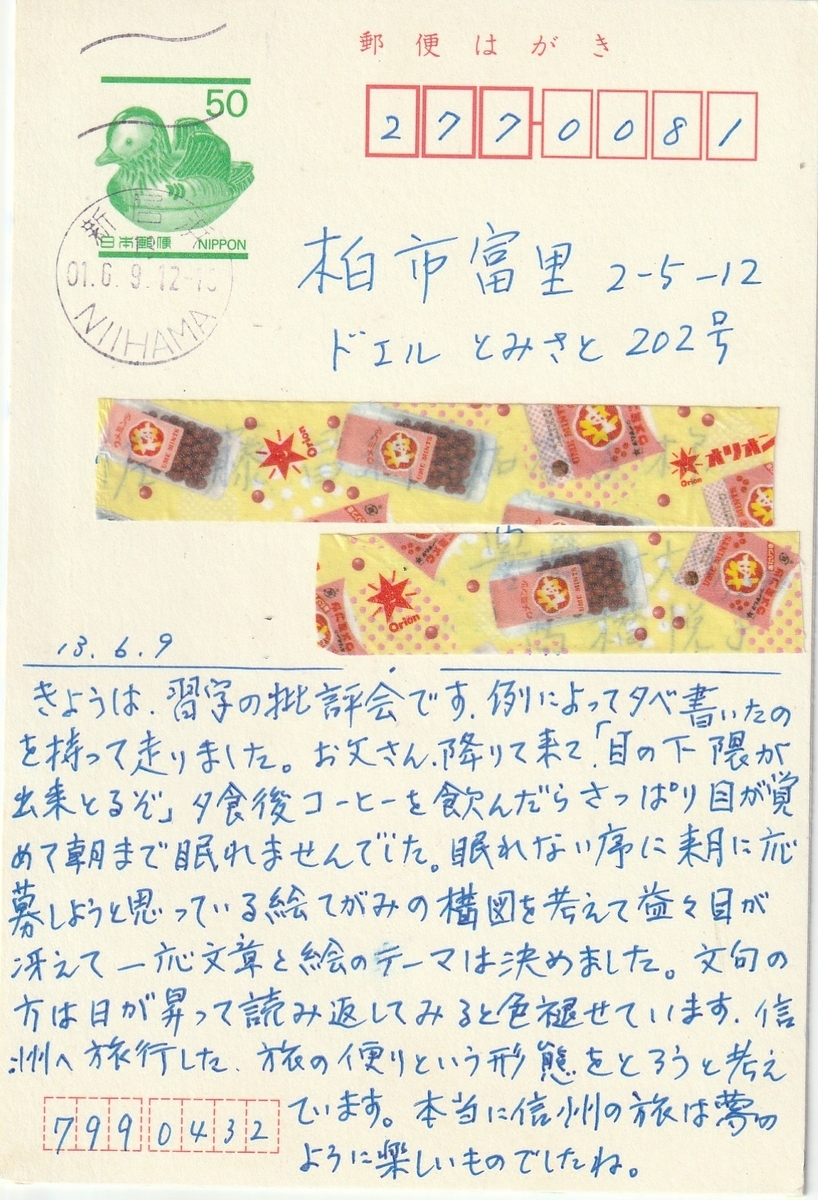 郵便はがき
50
日本郵便 NIPPON
277-0081
01.6.9.12-18
NIIHAMA
柏市富里 2-5-12
ドエル とみさと 202号
ウメミンツ
UME MINTS
Orion
オリオン
Orion
Orion
ウメミンツ
UME MINTS
13.6.9
きようは、習字の批評会です。例によって夕べ書いたの
を持って走りました。お父さん、降りて来て、「目の下隈が
出来とるぞ」夕食後コーヒーを飲んだらさっぱり目が覚
めて朝まで眠れませんでした。眠れない序に来月に応
募しようと思っている絵てがみの構図を考えて益々目が
冴えて一応文章と絵のテーマは決めました。文句の
方は日が昇って読み返してみると色褪せています。信
州へ旅行した、旅の便りという形態をとろうと考え
ています。本当に信州の旅は夢の
ように楽しいものでしたね。
7990432